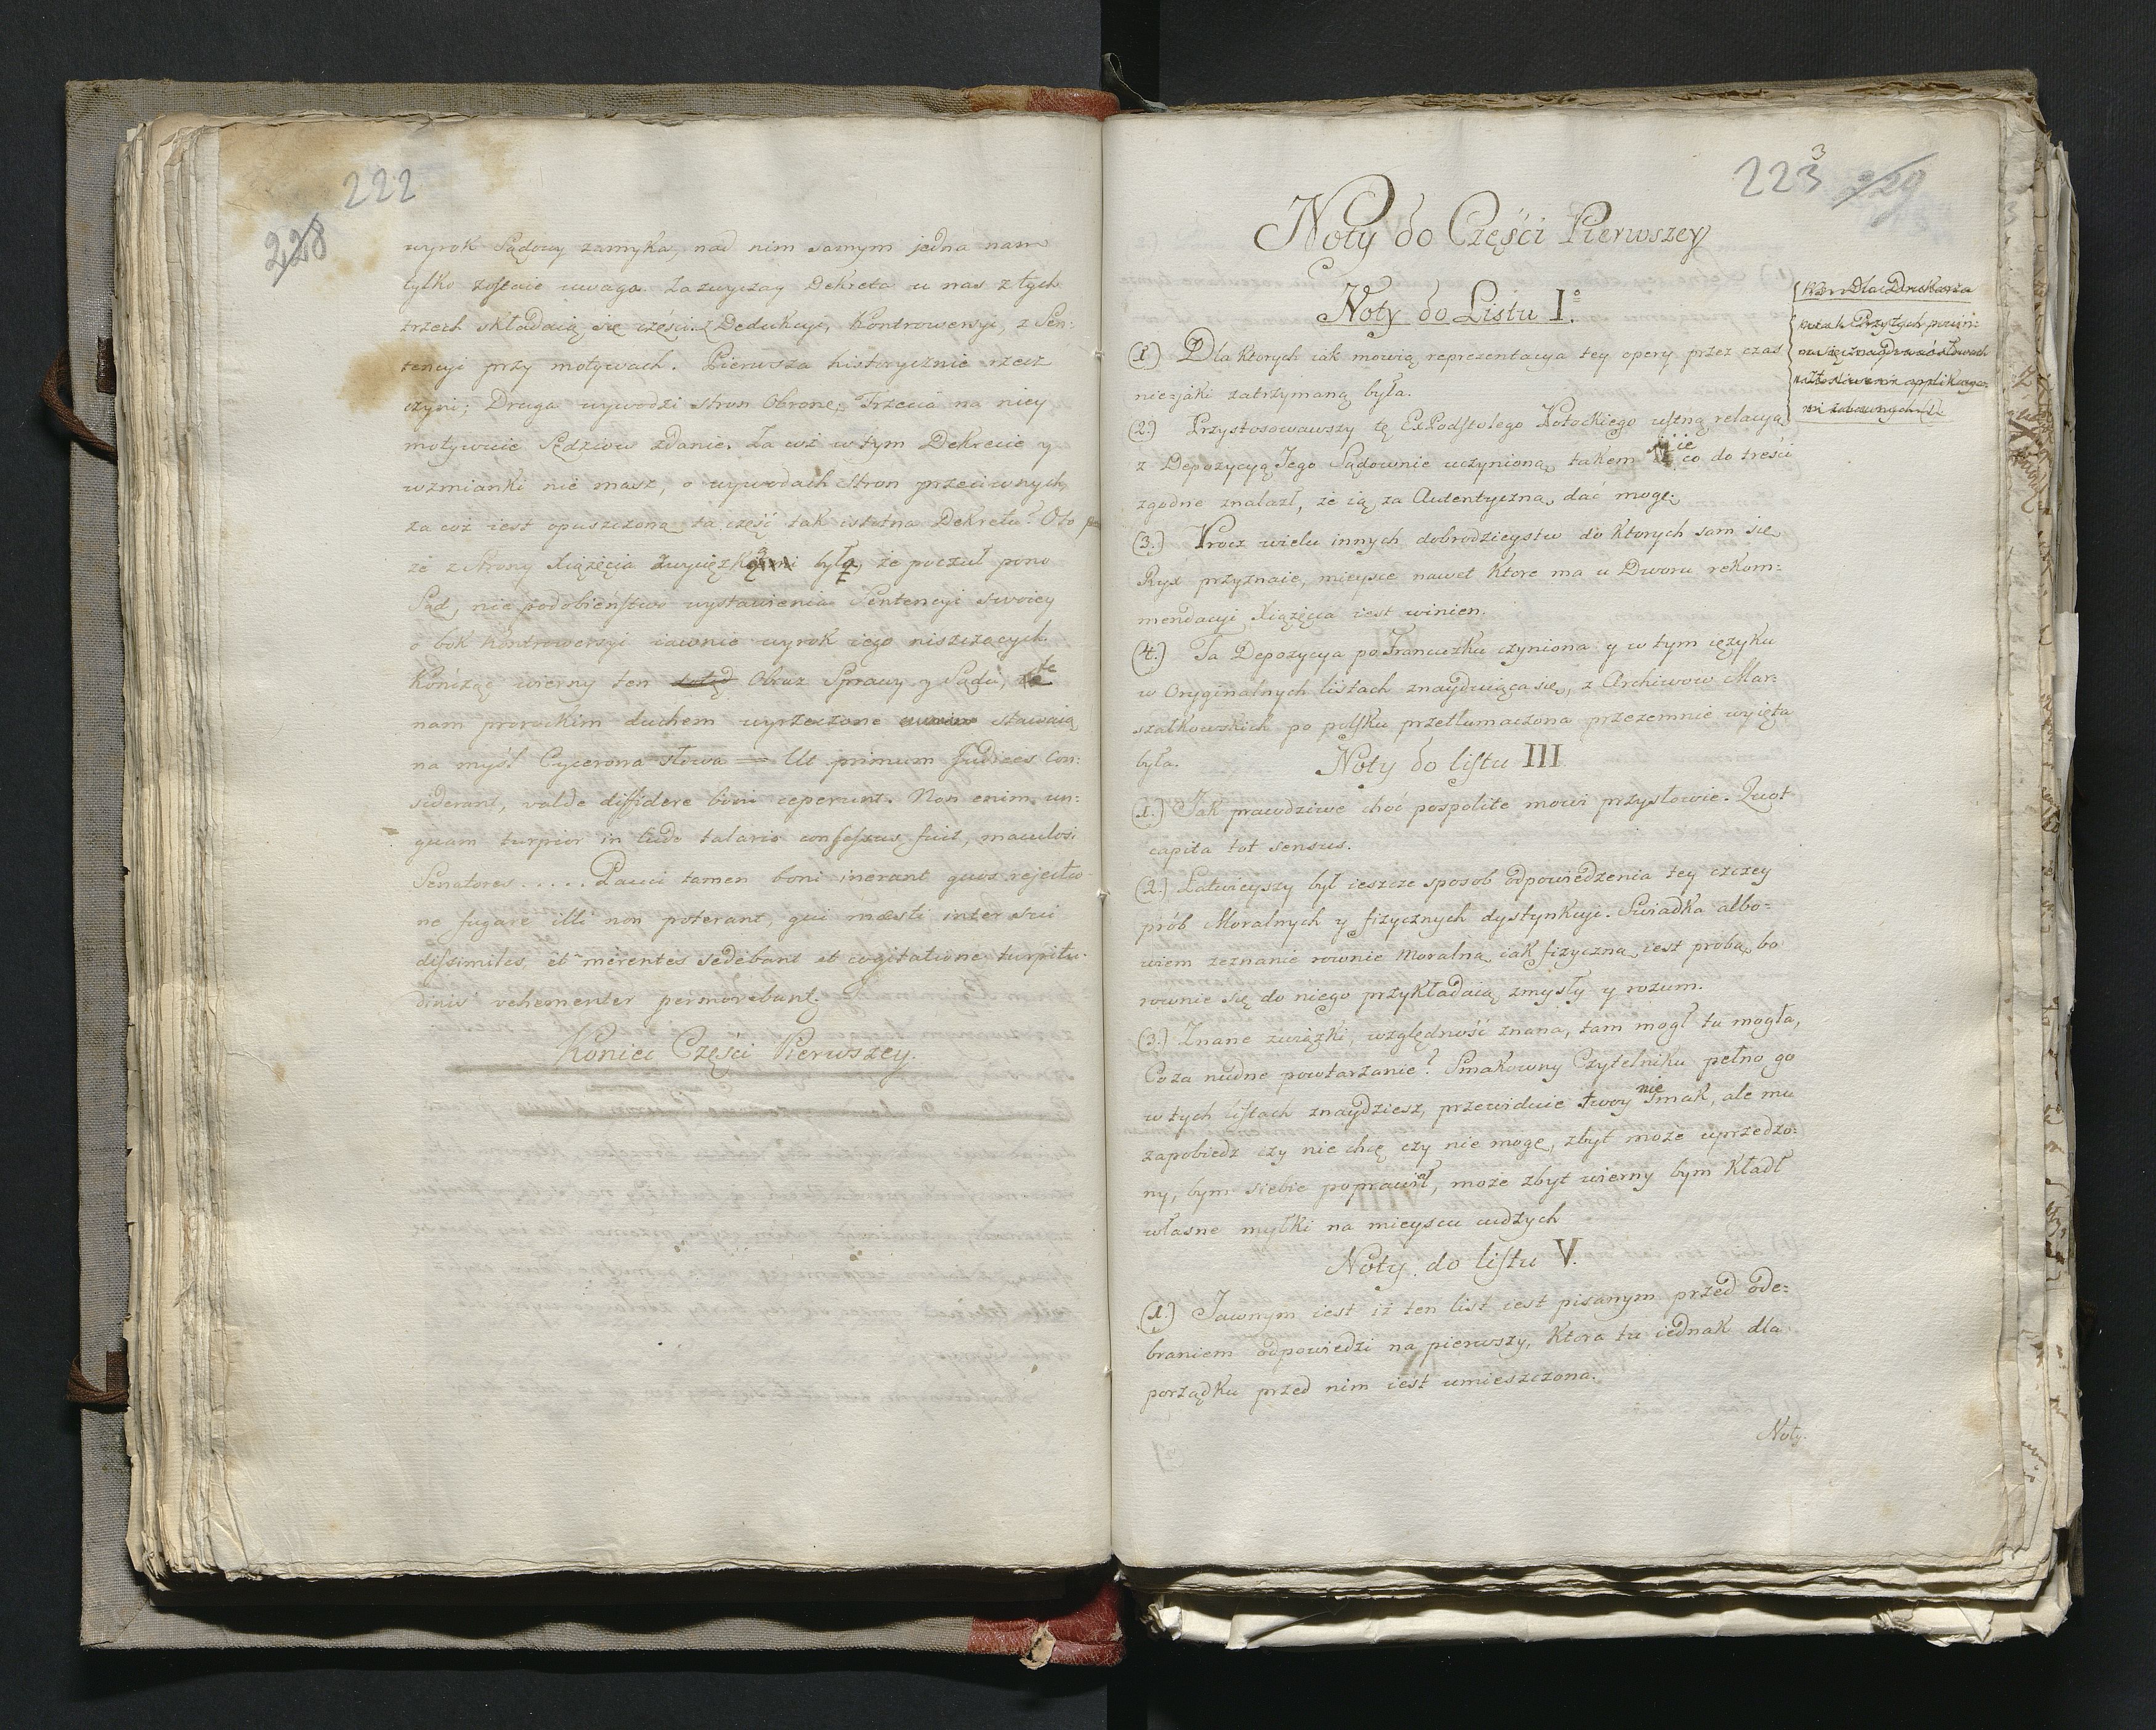 222
228
wyrok Sądowy zamyka, nad nim samym jedna nam
tylko zostaie uwaga. Zazwyczay Dekreta u nas z tych
trzech składaią się części. z Dedukcyi, Kontrowersyi, z Sen:
tencyi przy motywach. Pierwsza historycznie rzecz
czyni; Druga wywodzi stron Obronę, Trzecia na niey
motywuie Sędziow zdanie. Za coż w tym Dekrecie y
wzmianki nie masz, o wywodach Stron przeciwnych,
za coż iest opuszczoną ta część tak istotna Dekretu? Oto
że z Strony Xiążęcia zwycięzką była, że poczuł pono
Sąd, nie podobieństwo wystawienia Sentencyi swoiey
o bok Kontrowersyi iawnie wyrok iego niszczących.
Kończąc wierny ten Obraz Sprawy y Sądu, te
nam prorockim duchem wyrzeczone stawaią
na myśl Cycerona słowa = Ut primum Judices Con:
siderant, valde diffidere boni ceperunt. Non enim un:
quam turpior in ludo talario confessus fuit, maculosi
Senatores . . . . . Pauci tamen boni inerant quos rejectio
ne fugare illi non poterant, qui mæsti inter sui
dissimiles, et merentes sedebant et cogitatione turpitu:
dinis vehementer permovebant.
Koniec Części Pierwszey.
3
223 229
Noty do Części Pierwszey
Noty do Listu I.º
(1.) Dla ktorych iak mowią reprezentacya tey opery przez czas
nieiaki zatrzymaną była.
(2.) Przystosowawszy tę ExPodstolego Potockiego ustną relacyą
z Depozycyą Jego Sądownie uczynioną, takem ie co do treści
zgodne znalazł, że ią za Autentyczną, dać mogę.
(3.) Procz wielu innych dobrodzieystw do ktorych sam się
Ryx przyznaie, mieysce nawet ktore ma u Dworu rekom:
mendacyi Xiążęcia iest winien.
(4.) Ta Depozycya po Francuzku czyniona y w tym ięzyku
w Oryginalnych listach znayduiąca się, z Archiwow Mar:
szałkowskich po polsku przetłumaczona przezemnie wyięta
była.
Noty do listu III
(1.) Jak prawdziwe choć pospolite mowi przysłowie. Quot
capita tot sensus.
(2.) Latwieyszy był ieszcze sposob odpowiedzenia tey czczey
prób Moralnych y fizycznych dystynkcyi. Swiadka albo:
wiem zeznanie rownie Moralną iak fizyczną iest probą, bo
rownie się do niego przykładaią zmysły y rozum.
(3.) Znane związki, względność znana, tam mogł tu mogła,
Co za nudne powtarzanie? Smakowny Czytelniku pełno go
w tych listach znaydziesz, przewiduie twoy niesmak, ale mu
zapobiedz czy nie chcę czy nie mogę, zbyt może uprzedzo:
ny, bym siebie poprawił, może zbyt wierny bym kładł
własne myłki na mieyscu cudzych
Noty do listu V.
(1.) Jawnym iest iż ten list iest pisanym przed ode:
braniem odpowiedzi na pierwszy, ktora tu iednak dla
porządku przed nim iest umieszczona.
Noty